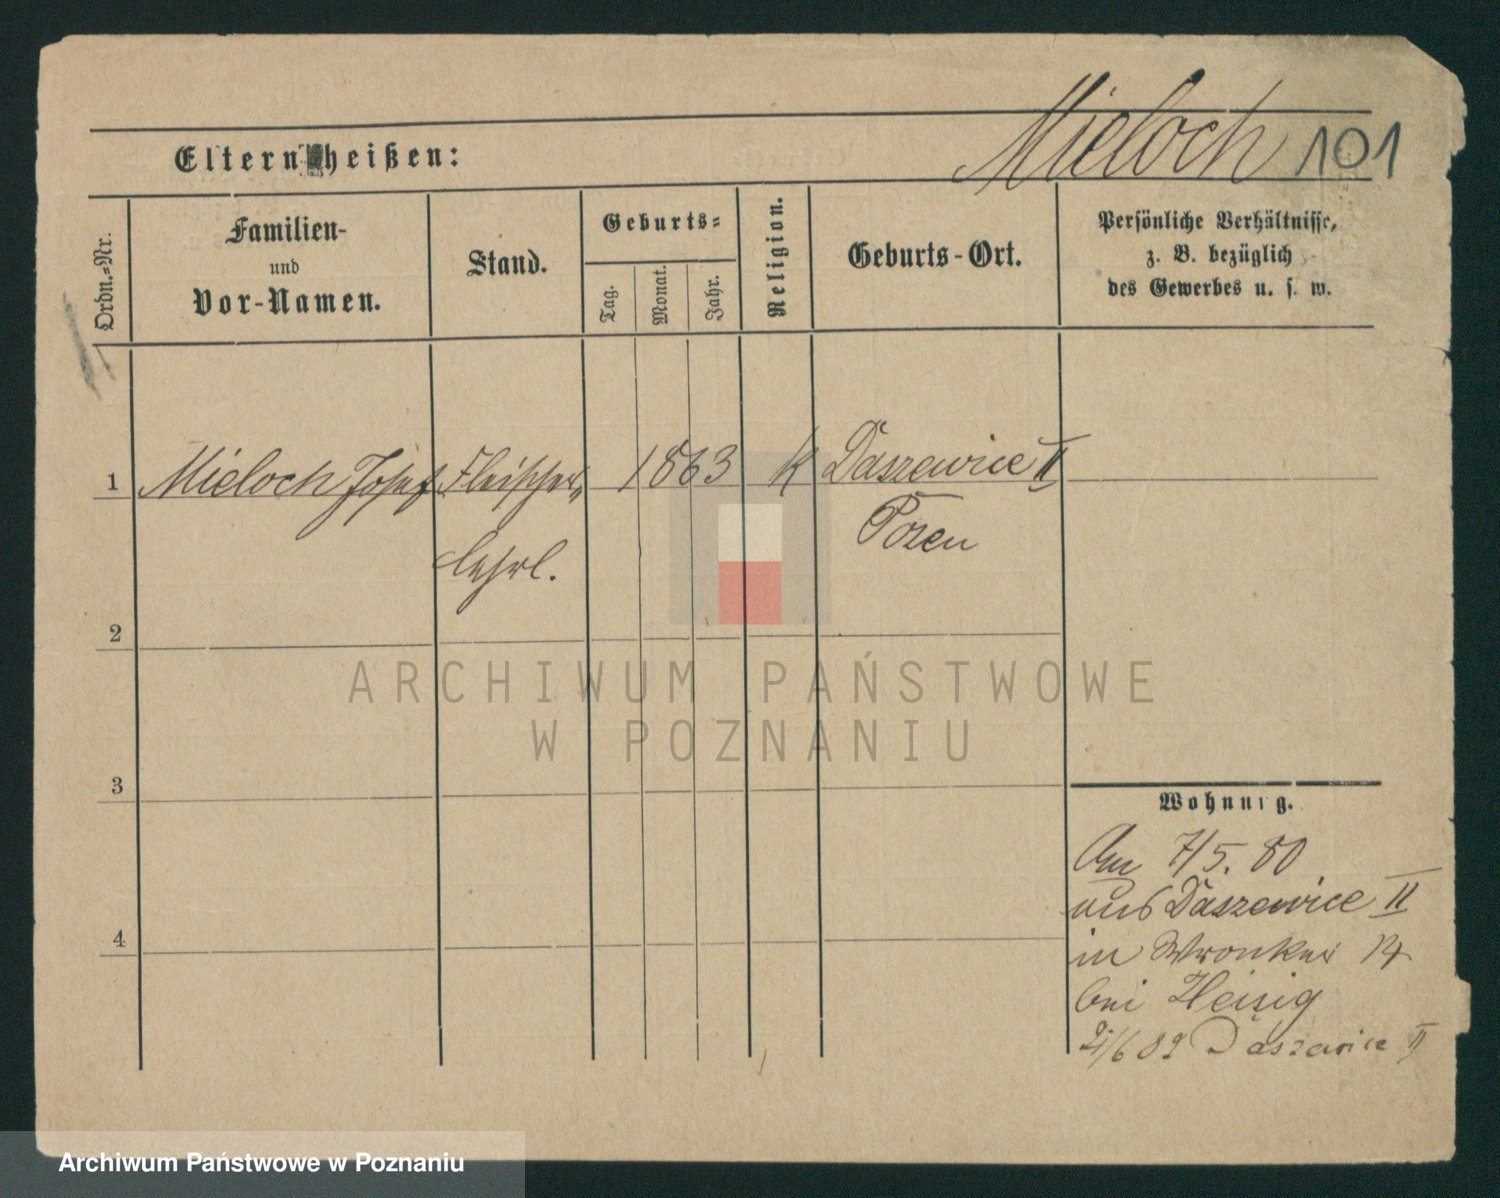 Mieloch 101
Eltern heißen:
Ordn.=Nr.
Familien-
und
Vor-Namen.
Stand.
Geburts=
Tag.
Monat.
Jahr.
Religion.
Geburts-Ort.
Persönliche Verhältnisse,
z. B. bezüglich
des Gewerbes u. s. w.
1 Mieloch Josef Fleischer, 1863 K Daszewice II
Posen
lehrl.
2
ARCHIWUM PAŃSTWOWE
W POZNANIU
3
Wohnung.
Am 7/5. 80
aus Daszewice II
in Wronker 14
bei Heisig
4
21/6 82 Daszewice II
Archiwum Państwowe w Poznaniu